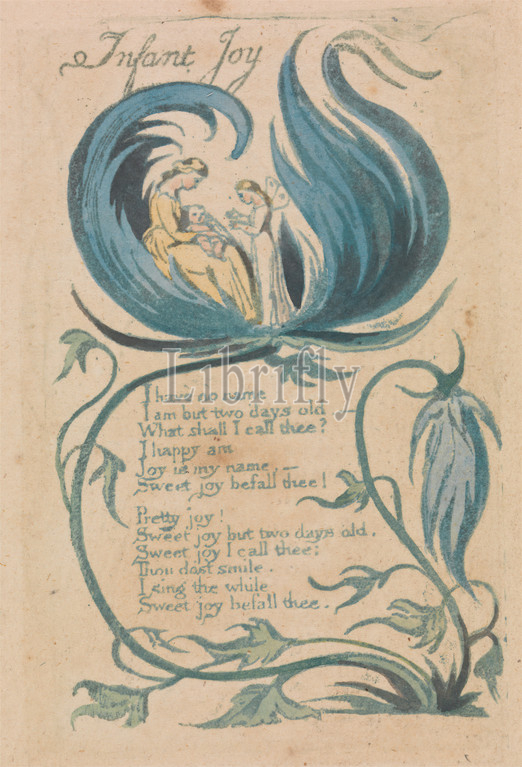 Infant Joy
Librifly
I have no name
I am but two days old —
What shall I call thee?
I happy am
Joy is my name, —
Sweet joy befall thee!
Pretty joy!
Sweet joy but two days old.
Sweet joy I call thee:
Thou dost smile.
I sing the while
Sweet joy befall thee.